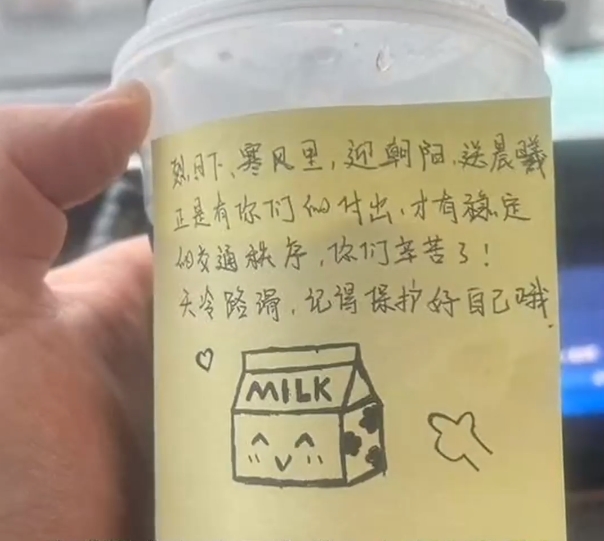 烈日下、寒风里，迎朝阳、送晨曦
正是有你们的付出，才有稳定
的交通秩序，你们辛苦了！
天冷路滑，记得保护好自己哦.
MILK